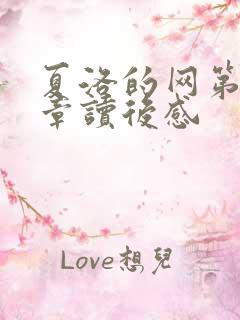 夏洛的网第
章讀後感
Love想兒